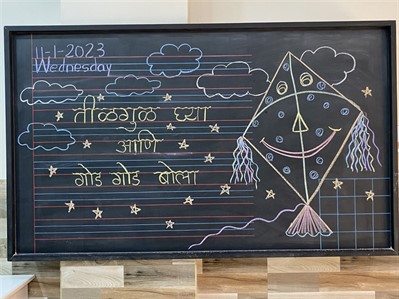 11-1-2023
Wednesday
तीळगुळ घ्या
आणि
गोड गोड बोला